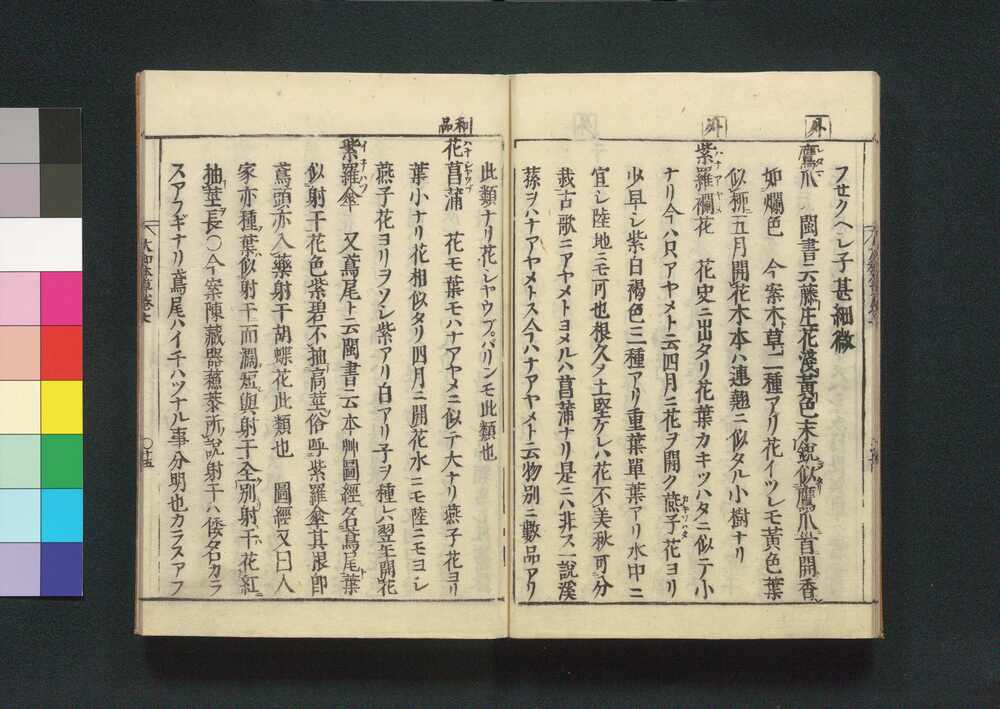 フセクヘシ子甚細微
外
鷹爪 レダマ 閩書云藤庄花淺黄色末鋭似鷹爪首開香
如爛色 今案木草二種アリ花イツレモ黄色葉
似柳五月開花木本ハ連翹ニ似タル小樹ナリ
外
紫羅襴花 ハナアヤメ 花史ニ出タリ花葉カキツハタニ似テ小
ナリ今ハ只アヤメト云四月ニ花ヲ開ク燕子花ヨリ カキツハタ
少早シ紫白褐色三種アリ重葉單葉アリ水中ニ
宜シ陸地ニモ可也根久ク土堅ケレハ花不美秋可分
栽古歌ニアヤメトヨメルハ菖蒲ナリ是ニハ非ス一說溪
蓀ヲハナアヤメトス今ハナアヤメト云物別ニ數品アリ
此類ナリ花シヤウブ。バリンモ此類也
和品
花菖蒲 ハナシヤウブ 花モ葉モハナアヤメニ似テ大ナリ燕子花ヨリ
葉小ナリ花相似タリ四月ニ開花水ニモ陸ニモヨシ
燕子花ヨリヲソシ紫アリ白アリ子ヲ種レハ翌年開花
紫羅傘 イチハツ 又鳶尾ト云閩書云本艸圖經名鳶尾葉
似射干花色紫碧不抽高莖俗呼紫羅傘其根即
鳶頭亦入藥射干胡蝶花此類也 圖經又曰人
家亦種葉似射干而濶短與射干全別射干花紅
抽莖長〇今案陳藏器蘓恭所說射干ハ倭名カラ
スアフギナリ鳶尾ハイチハツナル事分明也カラスアフ
大和本草卷七
〇十五